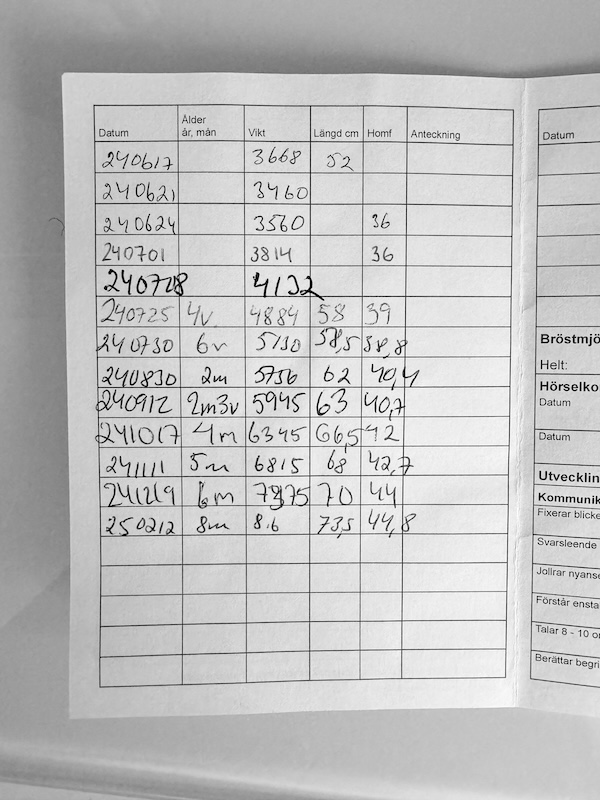 Datum Ålder år, mån Vikt Längd cm Homf Anteckning
240617 3668 52
240621 3460
240624 3560 36
240701 3814 36
240708 4132
240725 4v 4884 58 39
240730 6v 5130 58,5 38,8
240830 2m 5736 62 40,4
240912 2m3v 5945 63 40,7
241017 4m 6345 66,5 42
241111 5m 6815 68 42,7
241219 6m 70 44
250212 8m 8.6 73,5 44,8
Datum
Bröstmjö
Helt:
Hörselko
Datum
Datum
Utvecklin
Kommunik
Fixerar blicke
Svarsleende
Jollrar nyanse
Förstår ensta
Talar 8 - 10 or
Berättar begri